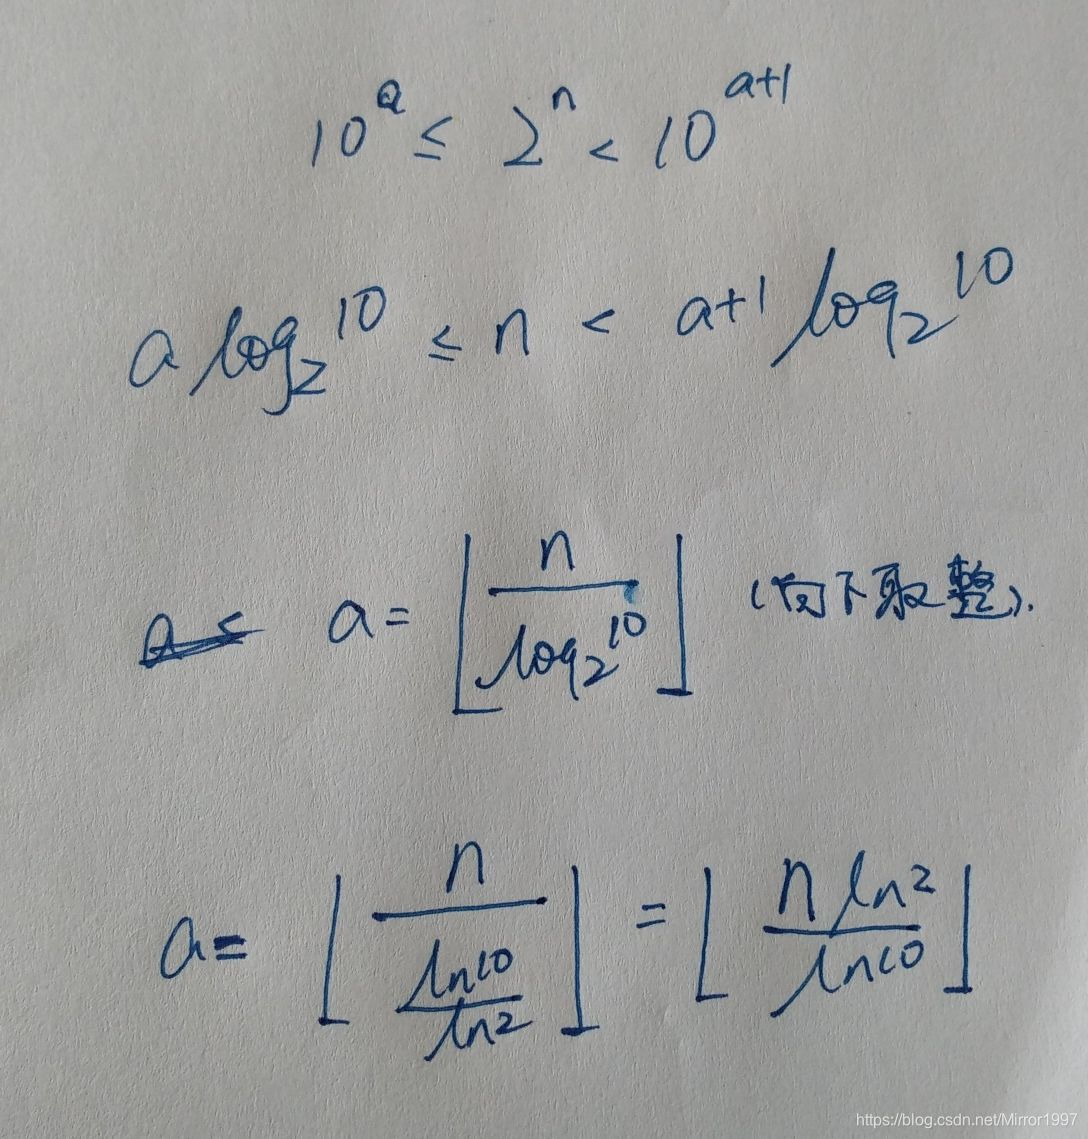 10^a ≤ 2^n < 10^{a+1}
a log_2 10 ≤ n < a+1 log_2 10
a = ⌊n / log_2 10⌋ (向下取整).
a = ⌊n / (ln10 / ln2)⌋ = ⌊n ln2 / ln10⌋
https://blog.csdn.net/Mirror1997